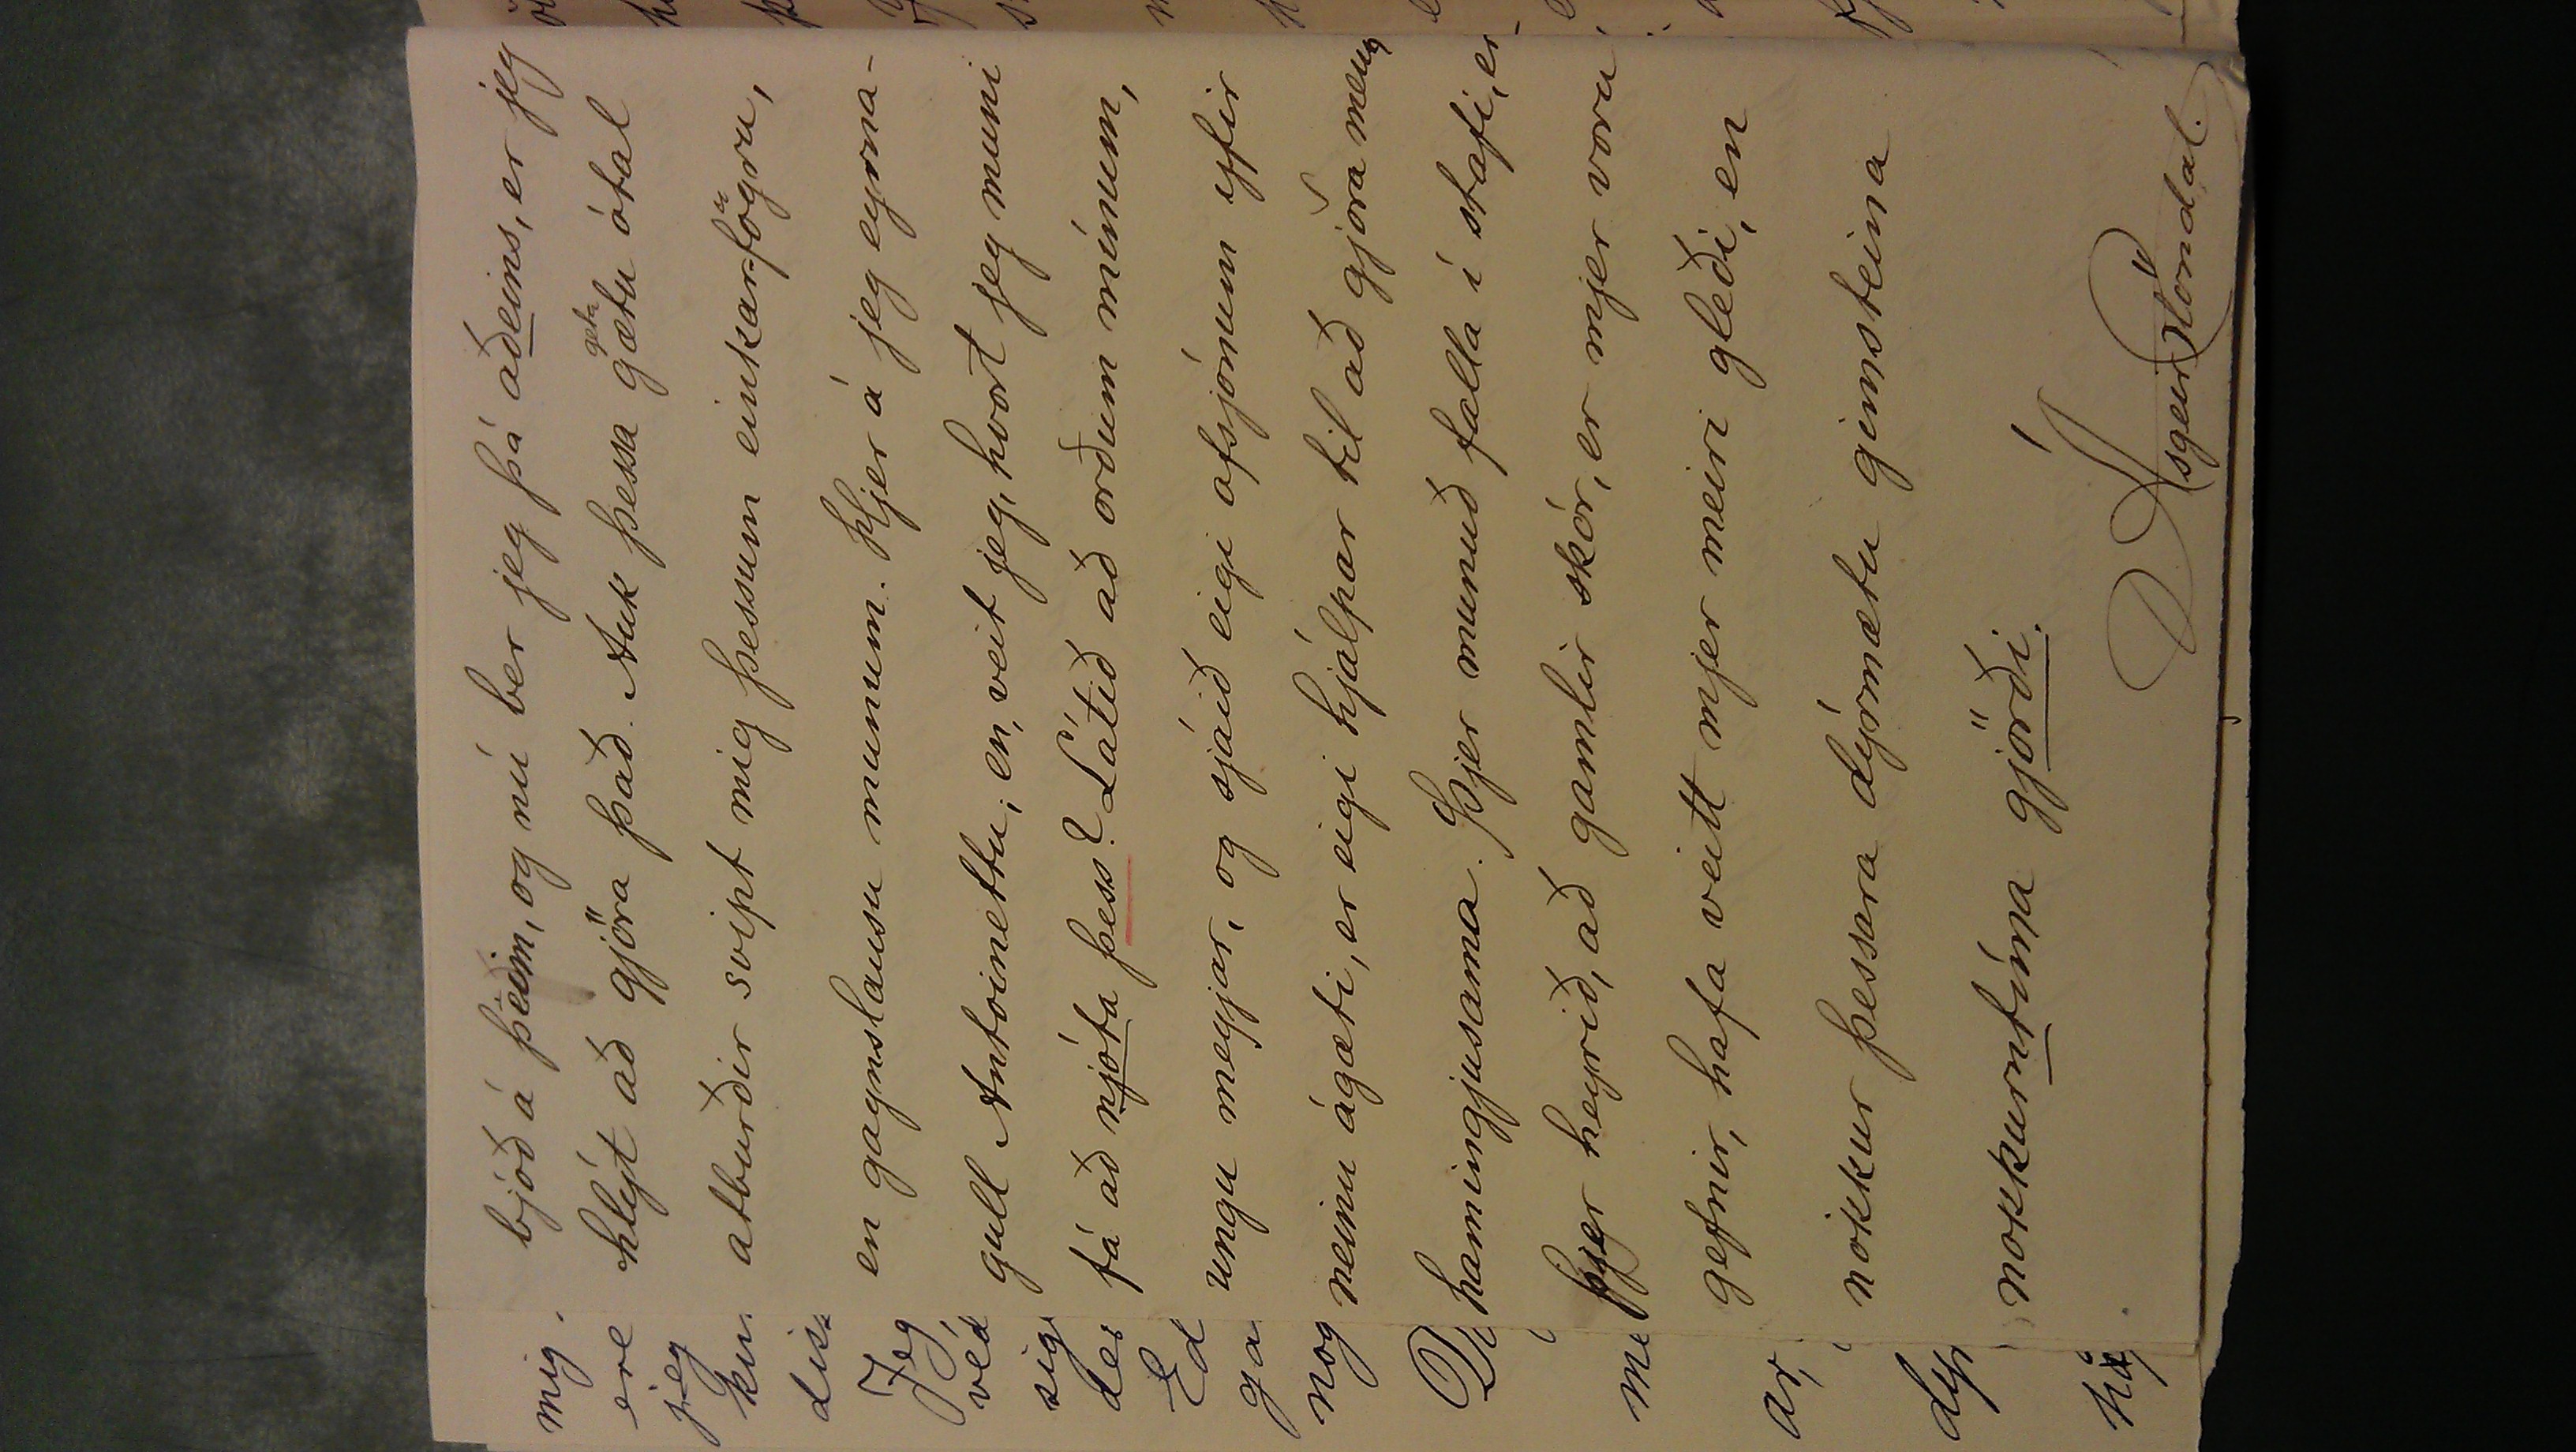 bjóð á þeim, og nú ber jeg þá aðeins, er jeg
hlýt að gjöra það. Auk þessa gætu geta ótal
atburðir svipt mig þessum einkar fögru,
en gagnslausu munum. Hjer á jeg eyrna-
gull Antoinettu; en, veit jeg, hvort jeg muni
fá að njóta þess? Látið að orðum mínum,
ungu meyjar, og sjáið eigi ofsjónum yfir
neinu ágæti, er eigi hjálpar til að gjöra menn
hamingjusama. Þjer munuð falla í stafi, er
þjer heyrið, að gamlir skór, er mjer voru
gefnir, hafa veitt mjer meiri gleði, en
nokkur þessara dýrmætu gimsteina
nokkurntíma gjörði.
Ásgeir Blöndal.
mig.
ere
jeg
kun
Jeg
véd
sig
des
Ed
ga
nog
me
ar,